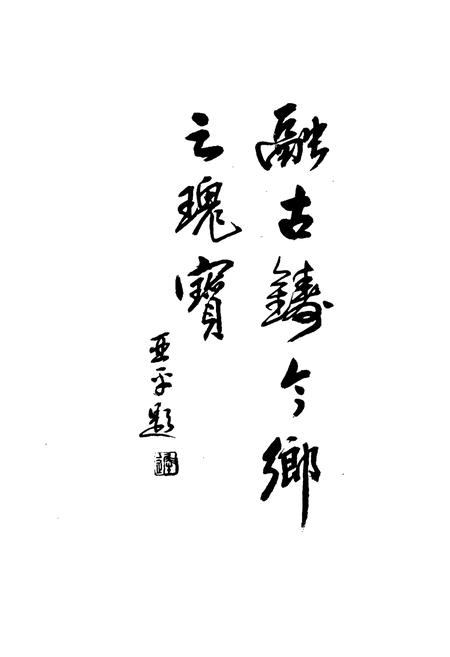 融古鑄今鄉
之瑰寶
亚平題